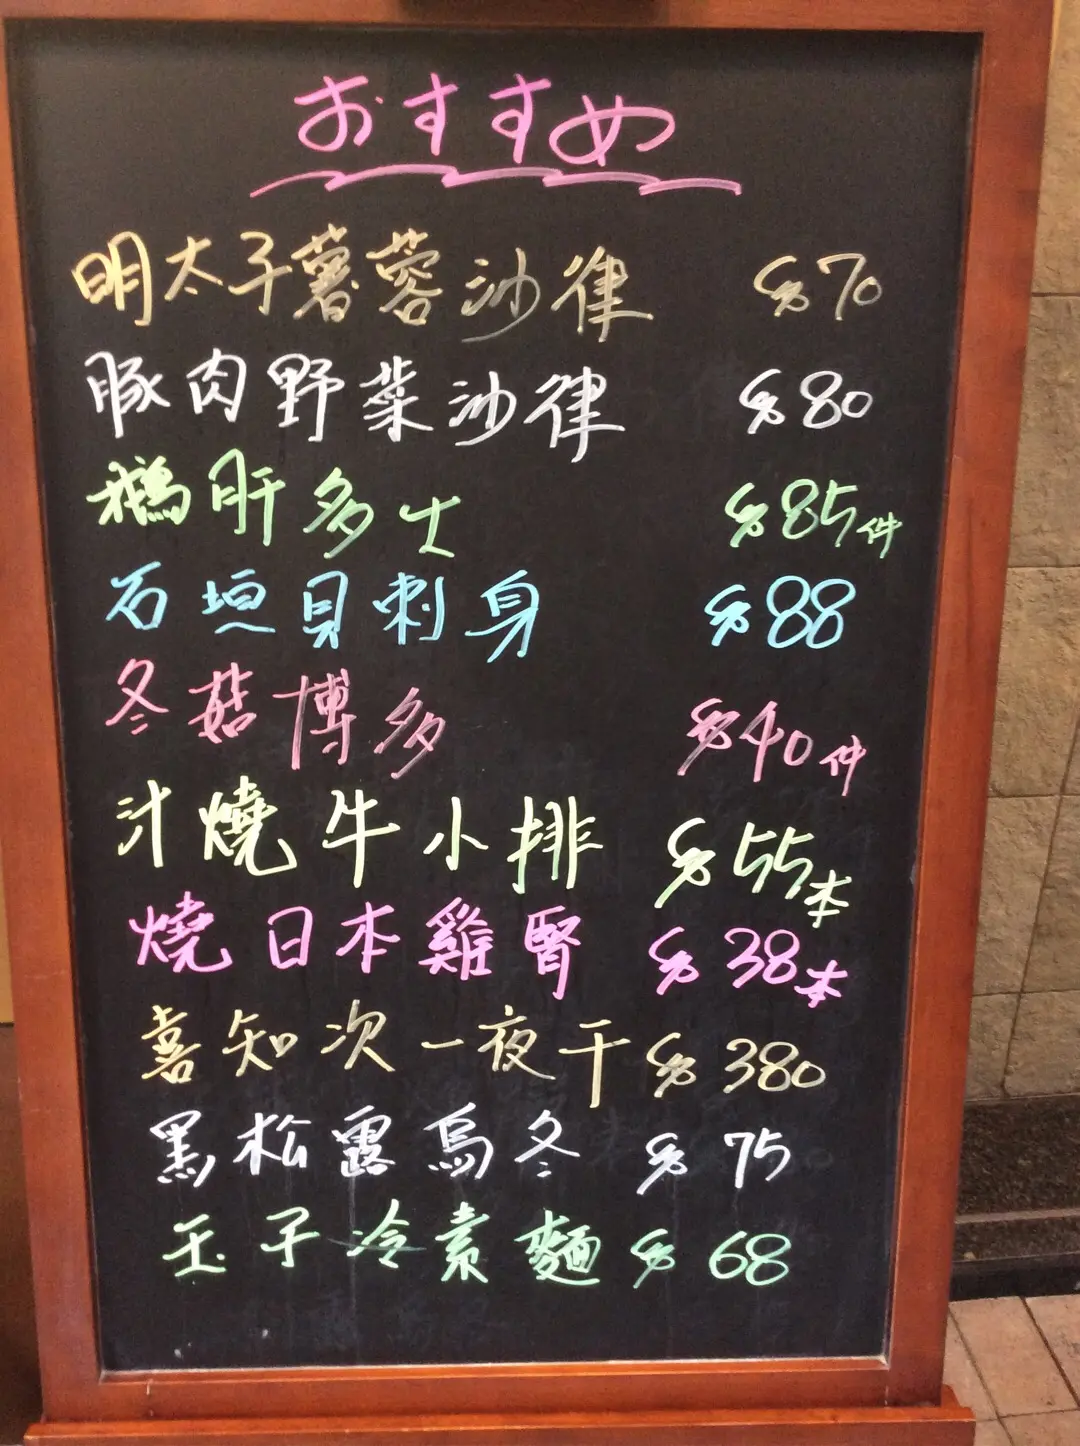 おすすめ
明太子薯蓉沙律 $70
豚肉野菜沙律 $80
鵝肝多士 $85件
石垣貝刺身 $88
冬菇博多 $40件
汁燒牛小排 $55本
燒日本雞腎 $38本
喜知次一夜干 $380
黑松露烏冬 $75
玉子冷素麵 $68